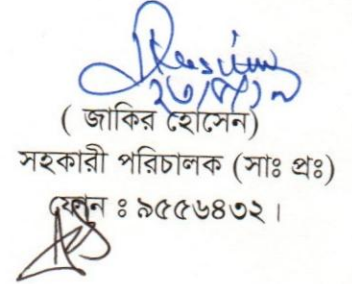 ( জাকির হোসেন)
সহকারী পরিচালক (সাঃ প্রঃ)
ফোন ঃ ৯৫৫৬৪৩২।